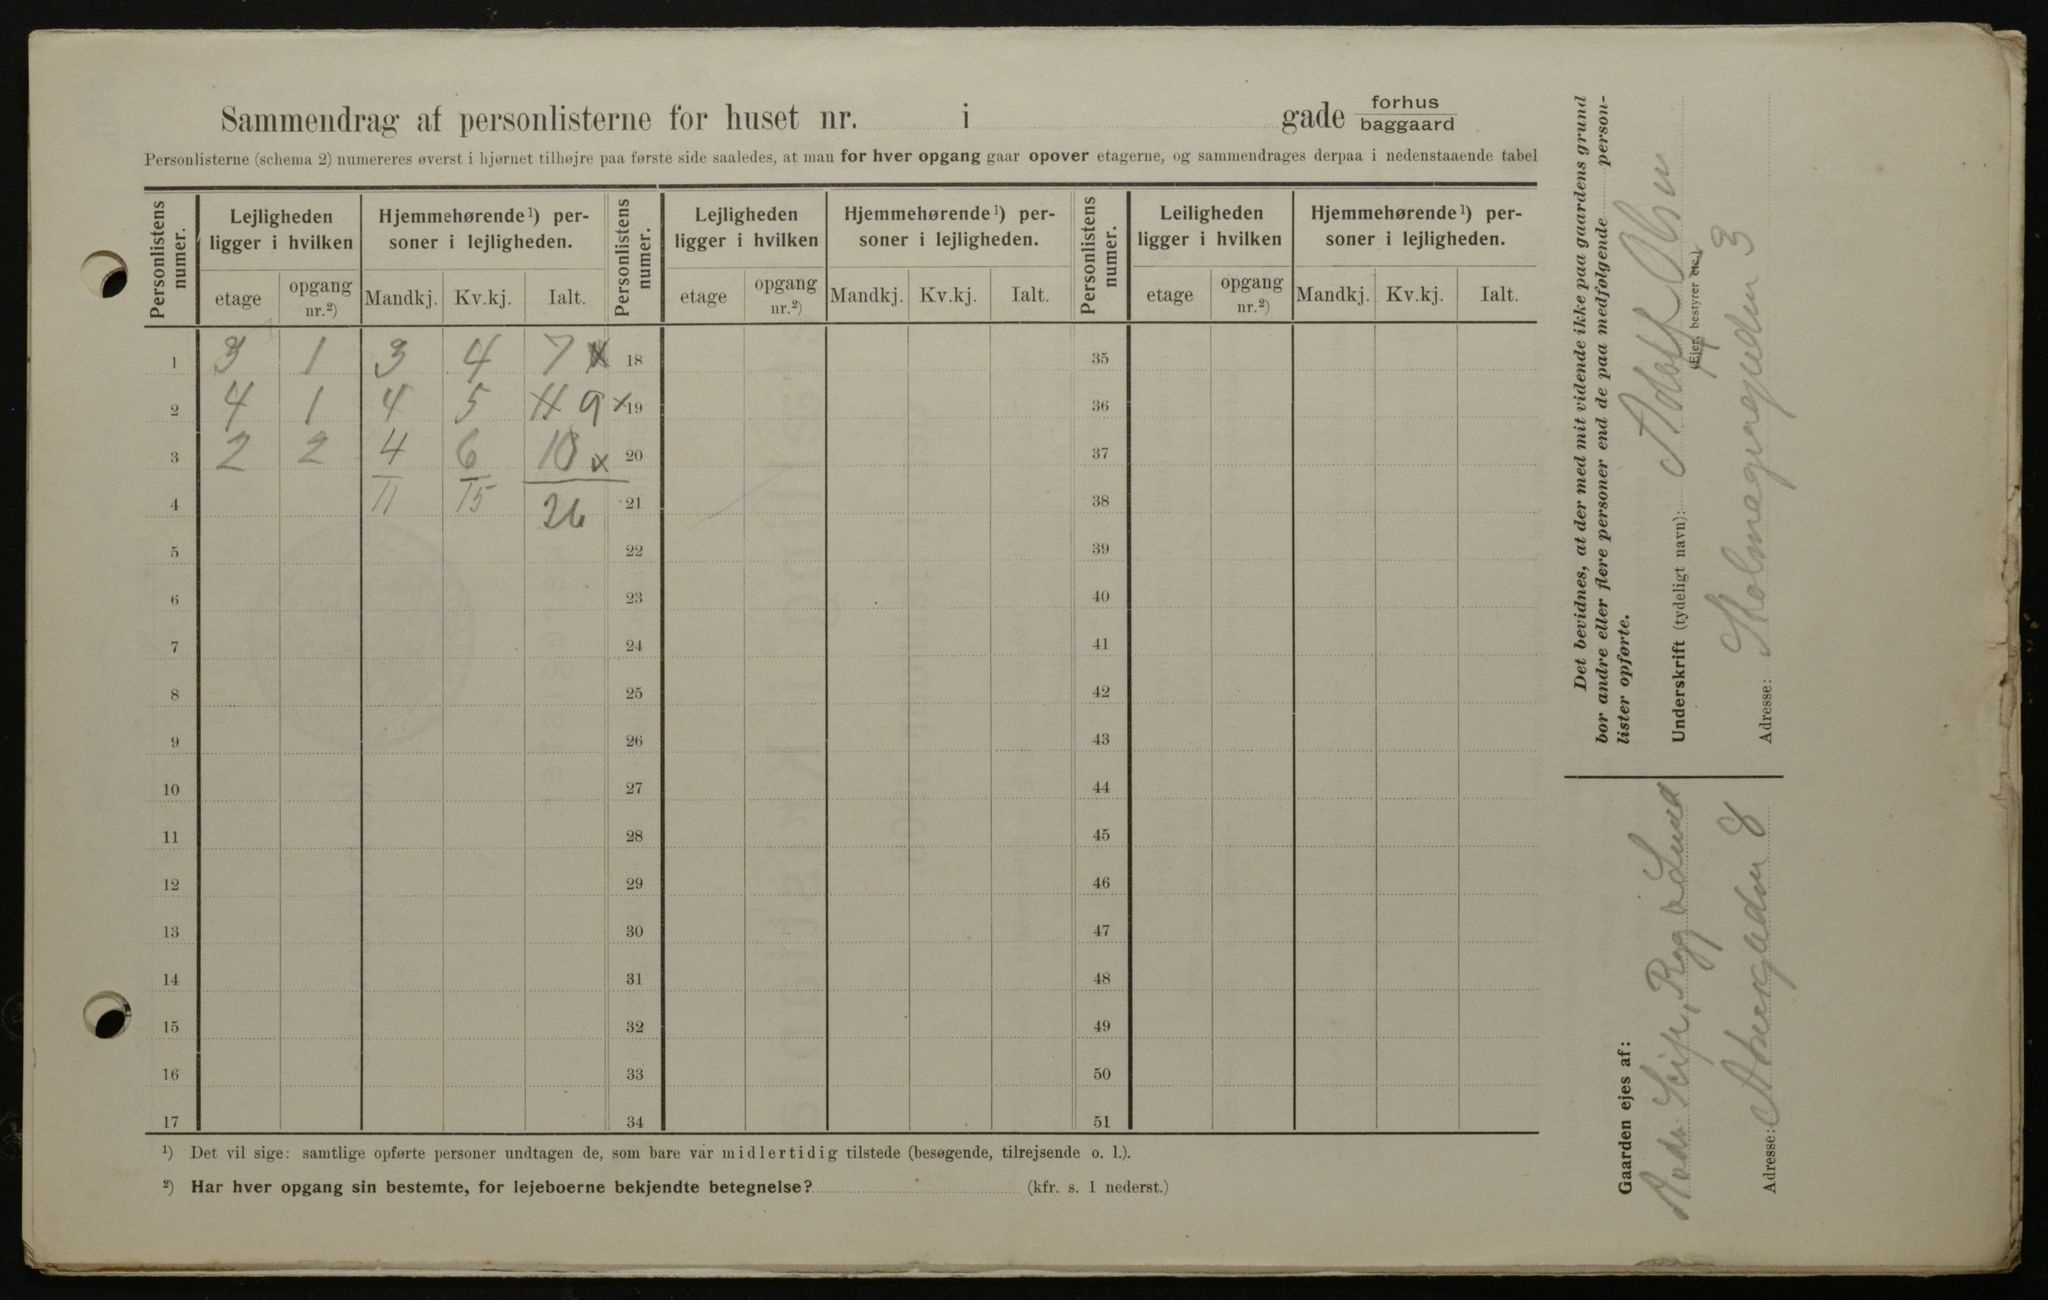 Sammendrag af personlisterne for huset nr. i gade forhus baggaard
Personlisterne (schema 2) numereres øverst i hjørnet tilhøjre paa første side saaledes, at man for hver opgang gaar opover etagerne, og sammendrages derpaa i nedenstaaende tabel
Personlistens numer. Lejligheden ligger i hvilken Hjemmehørende¹) personer i lejligheden. Personlistens numer. Lejligheden ligger i hvilken Hjemmehørende¹) personer i lejligheden. Personlistens numer. Leiligheden ligger i hvilken Hjemmehørende¹) personer i lejligheden.
etage opgang nr.²) Mandkj. Kv.kj. Ialt. etage opgang nr.²) Mandkj. Kv.kj. Ialt. etage opgang nr.²) Mandkj. Kv.kj. Ialt.
1 3 1 3 4 7 x 18 35
2 4 1 4 5 11 9 x 19 36
3 2 2 4 6 10 x 20 37
4 11 15 26 21 38
5 22 39
6 23 40
7 24 41
8 25 42
9 26 43
10 27 44
11 28 45
12 29 46
13 30 47
14 31 48
15 32 49
16 33 50
17 34 51
¹) Det vil sige: samtlige opførte personer undtagen de, som bare var midlertidig tilstede (besøgende, tilrejsende o. l.).
²) Har hver opgang sin bestemte, for lejeboerne bekjendte betegnelse? (kfr. s. 1 nederst.)
Det bevidnes, at der med mit vidende ikke paa gaardens grund
bor andre eller flere personer end de paa medfølgende person-
lister opførte.
Underskrift (tydeligt navn): Adolf Olsen
(Ejer, bestyrer etc.)
Adresse: Holmegaardeden 3
Gaarden ejes af:
Lund
Adresse: Akersgaden 8